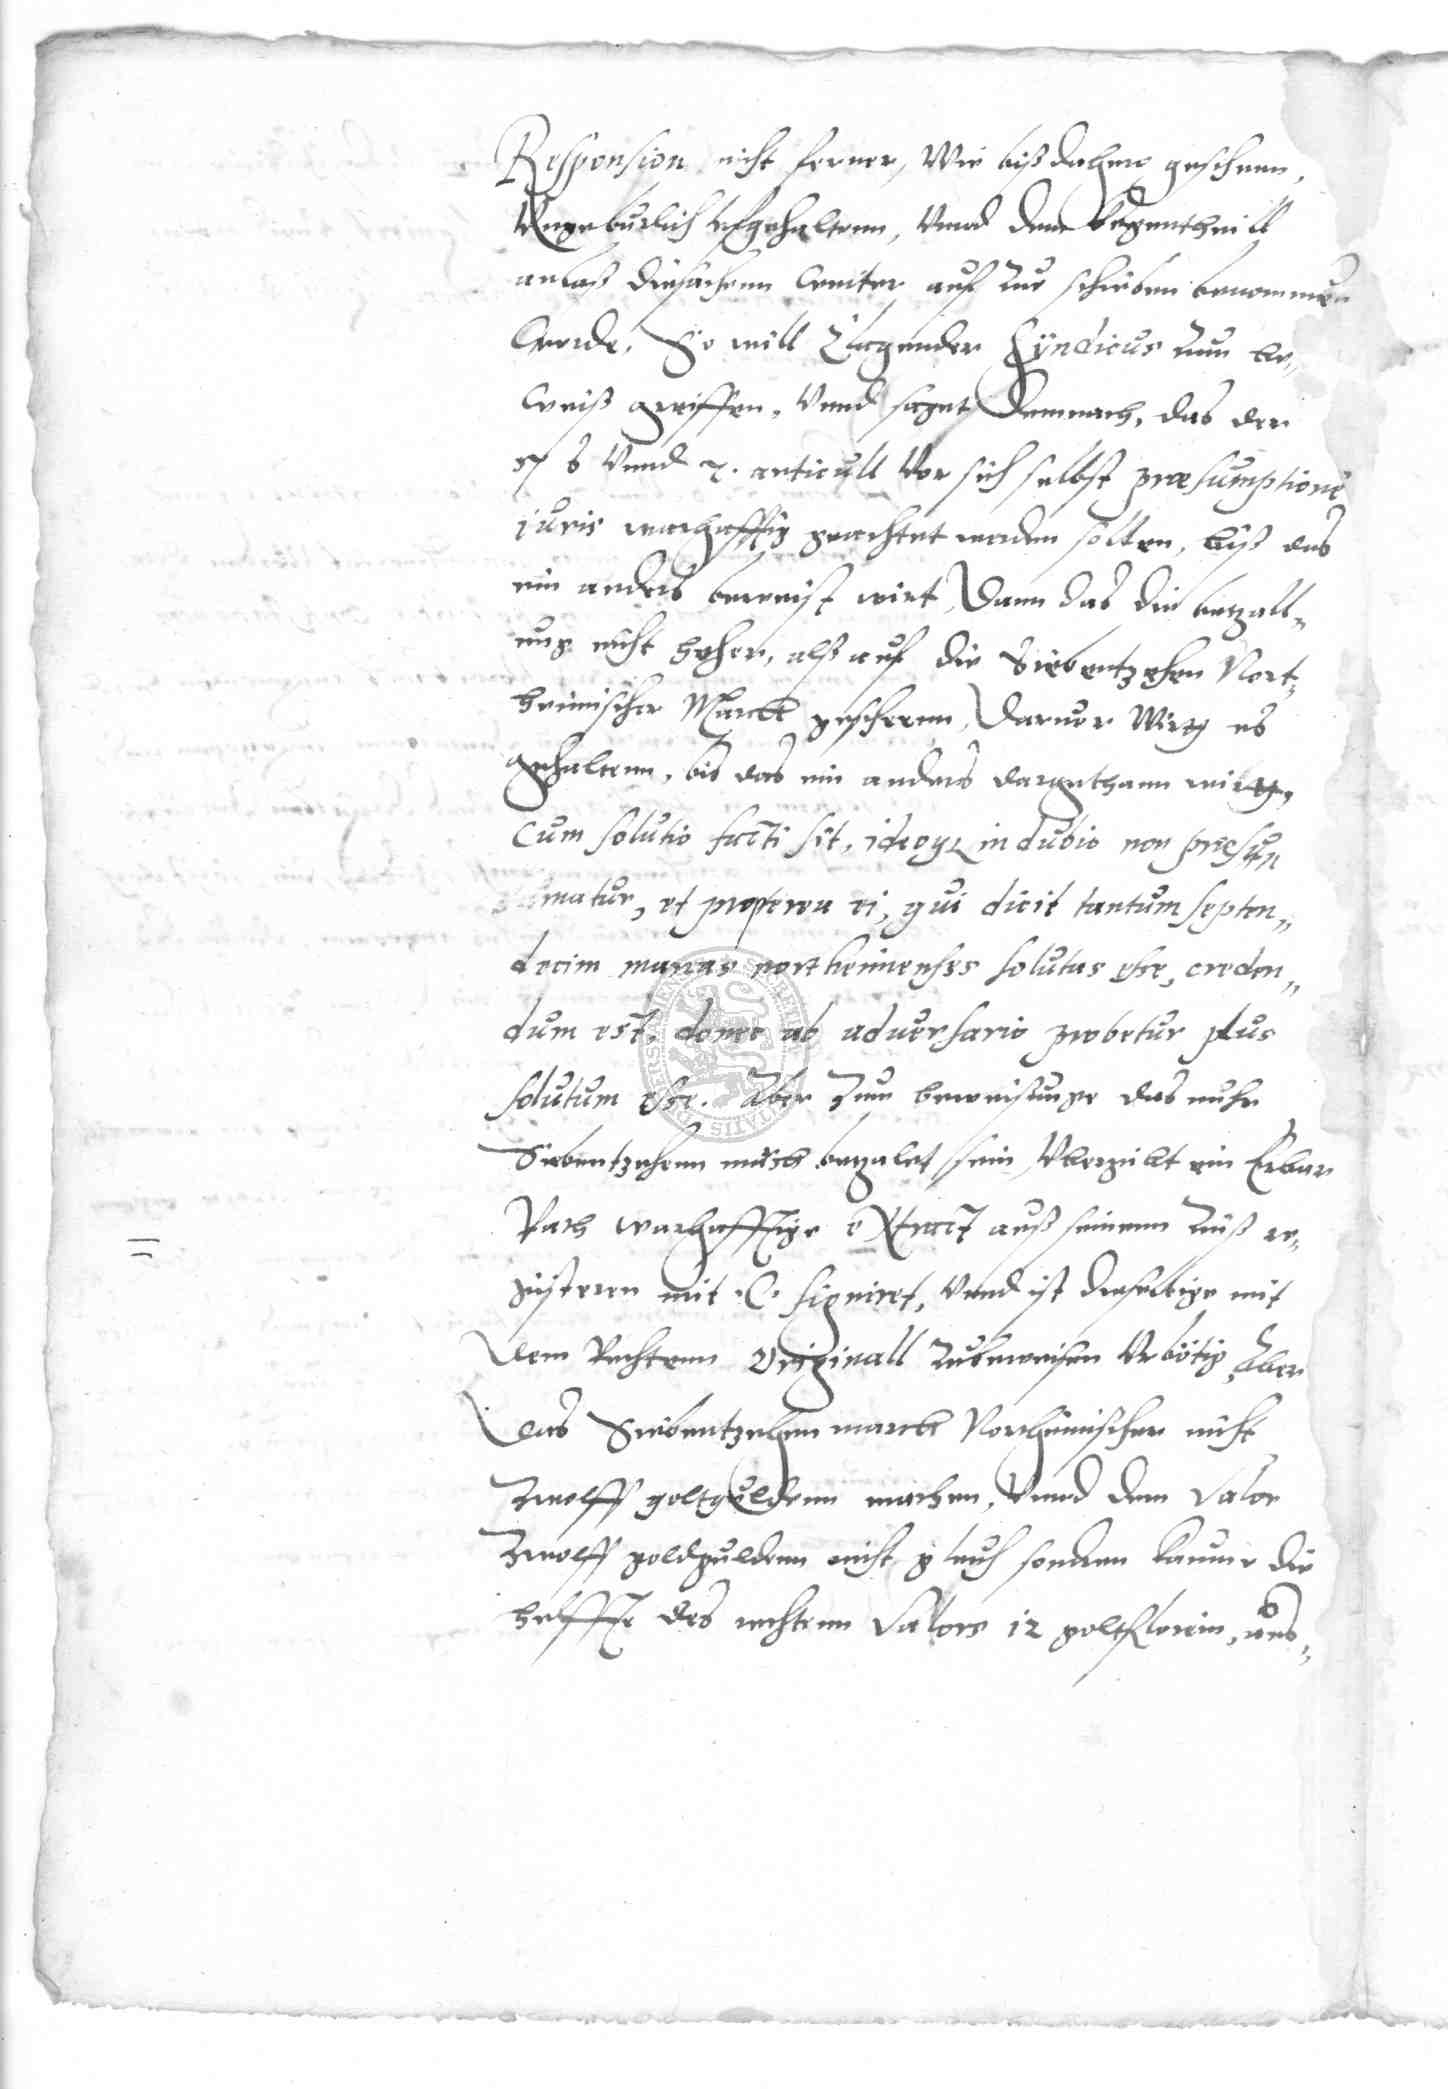 Responsion nicht ferner, Wie biß dahero geschenn,
Ungeburlich ufgehaltenn, Unnd dem kegentheill
anlaß diesachenn weiter auf zue schieben benommen
werde, So will Clagender Syndicus zum be„
weiß greiffen, Unnd sagt Demnach, das der
Unnd 7. articull Vor sich selbst præsumptione
iuris warhafftig geachtet werden sollen, biß das
ein anders beweist wirt, Dann das die betzall„
ung nicht hoher, alß auf die Siebentzehen Nort„
heimischer Marck gescheenn, Daruor Wirtt es
gehaltenn, bis das ein anders dargethann wirtt,
Cum solutio facti sit, ideoque in dubio non præsu„
matur, et propterea ei, qui dicit tantum septen„
decim marcas northeimenses solutas esse, creden„
dum est, donec ab aduersario probetur plus
solutum esse. Aber Zum beweisunge das nuhr
Siebentzehenn march betzalet sein, Ubergibt ein Erbar
Rath warhafftige eXtract auß seinenn Zinß re„
gisteren mit .C. signiret, Unnd ist dieselbige mit
dem Rechtenn Originall zubeweisen Urbötig, Aber
das Siebentzehen marck Northeimischer nicht
Zwolff goltguldenn machen, Unnd dem Valor
Zwolff goldguldenn nicht gleich sondern kaume die
helffte des rechtenn Valors 12 goltflorein, aus„